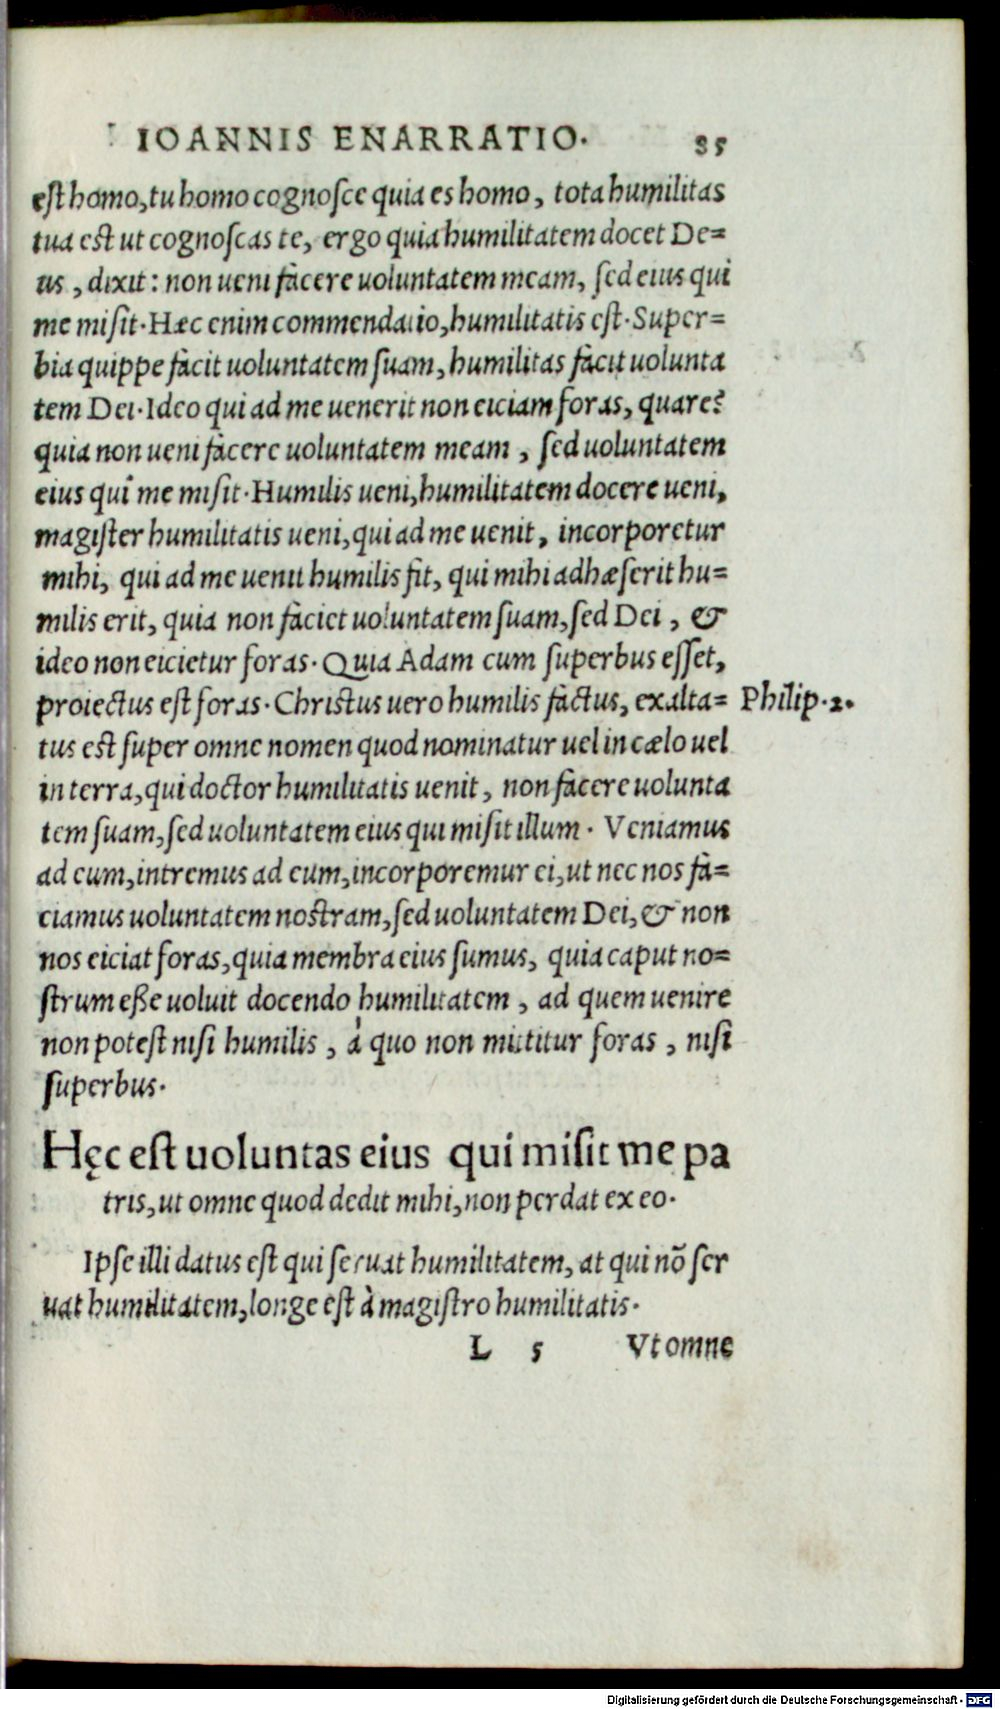 IOANNIS ENARRATIO. 85
est homo, tu homo cognosce quia es homo, tota humilitas
tua est ut cognoscas te, ergo quia humilitatem docet De=
us, dixit: non ueni facere uoluntatem meam, sed eius qui
me misit. Hæc enim commendatio, humilitatis est. Super=
bia quippe facit uoluntatem suam, humilitas facit uolunta
tem Dei. Ideo qui ad me uenerit non eiciam foras, quare?
quia non ueni facere uoluntatem meam, sed uoluntatem
eius qui me misit. Humilis ueni, humilitatem docere ueni,
magister humilitatis ueni, qui ad me uenit, incorporetur
mihi, qui ad me uenit humilis fit, qui mihi adhæserit hu=
milis erit, quia non faciet uoluntatem suam, sed Dei, &
ideo non eicietur foras. Quia Adam cum superbus esset,
proiectus est foras. Christus uero humilis factus, exalta= Philip. 2.
tus est super omne nomen quod nominatur uel in cælo uel
in terra, qui doctor humilitatis uenit, non facere uolunta
tem suam, sed uoluntatem eius qui misit illum. Veniamus
ad eum, intremus ad eum, incorporemur ei, ut nec nos fa=
ciamus uoluntatem nostram, sed uoluntatem Dei, & non
nos eiciat foras, quia membra eius sumus, quia caput no=
strum eße uoluit docendo humilitatem, ad quem uenire
non potest nisi humilis, à quo non mittitur foras, nisi
superbus.
Hęc est uoluntas eius qui misit me pa
tris, ut omne quod dedit mihi, non perdat ex eo.
Ipse illi datus est qui seruat humilitatem, at qui nõ ser
uat humilitatem, longe est à magistro humilitatis.
L 5 Vt omne
Digitalisierung gefördert durch die Deutsche Forschungsgemeinschaft - DFG